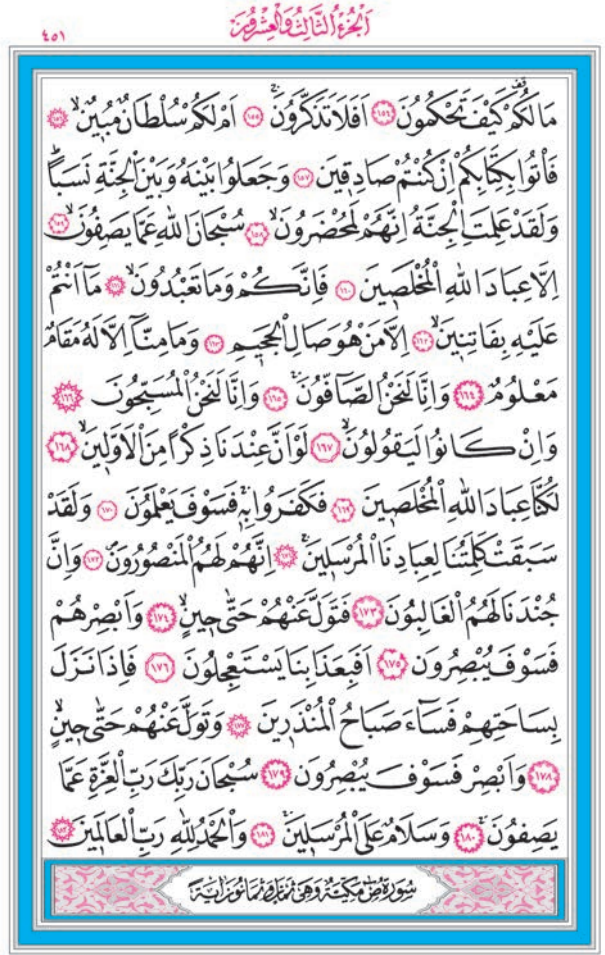 اَلْجُزْءُ الثَّالِثُ وَالْعِشْرُونَ
٤٥١
مَا لَكُمْ كَيْفَ تَحْكُمُونَ ﴿١٥٤﴾ اَفَلَا تَذَكَّرُونَۚ ﴿١٥٥﴾ اَمْ لَكُمْ سُلْطَانٌ مُبٖينٌۙ ﴿١٥٦﴾
فَأْتُوا بِكِتَابِكُمْ اِنْ كُنْتُمْ صَادِقٖينَ ﴿١٥٧﴾ وَجَعَلُوا بَيْنَهُ وَبَيْنَ الْجِنَّةِ نَسَبًاۜ
وَلَقَدْ عَلِمَتِ الْجِنَّةُ اِنَّهُمْ لَمُحْضَرُونَۙ ﴿١٥٨﴾ سُبْحَانَ اللّٰهِ عَمَّا يَصِفُونَۙ ﴿١٥٩﴾
اِلَّا عِبَادَ اللّٰهِ الْمُخْلَصٖينَ ﴿١٦٠﴾ فَاِنَّكُمْ وَمَا تَعْبُدُونَۙ ﴿١٦١﴾ مَٓا اَنْتُمْ
عَلَيْهِ بِفَاتِنٖينَۙ ﴿١٦٢﴾ اِلَّا مَنْ هُوَ صَالِ الْجَحٖيمِ ﴿١٦٣﴾ وَمَا مِنَّٓا اِلَّا لَهُ مَقَامٌ
مَعْلُومٌ ﴿١٦٤﴾ وَاِنَّا لَنَحْنُ الصَّٓافُّونَۚ ﴿١٦٥﴾ وَاِنَّا لَنَحْنُ الْمُسَبِّحُونَ ﴿١٦٦﴾
وَاِنْ كَانُوا لَيَقُولُونَۙ ﴿١٦٧﴾ لَوْ اَنَّ عِنْدَنَا ذِكْرًا مِنَ الْاَوَّلٖينَۙ ﴿١٦٨﴾
لَكُنَّا عِبَادَ اللّٰهِ الْمُخْلَصٖينَ ﴿١٦٩﴾ فَكَفَرُوا بِهٖ فَسَوْفَ يَعْلَمُونَ ﴿١٧٠﴾ وَلَقَدْ
سَبَقَتْ كَلِمَتُنَا لِعِبَادِنَا الْمُرْسَلٖينَۚ ﴿١٧١﴾ اِنَّهُمْ لَهُمُ الْمَنْصُورُونَۖ ﴿١٧٢﴾ وَاِنَّ
جُنْدَنَا لَهُمُ الْغَالِبُونَ ﴿١٧٣﴾ فَتَوَلَّ عَنْهُمْ حَتّٰى حٖينٍۙ ﴿١٧٤﴾ وَاَبْصِرْهُمْ
فَسَوْفَ يُبْصِرُونَ ﴿١٧٥﴾ اَفَبِعَذَابِنَا يَسْتَعْجِلُونَ ﴿١٧٦﴾ فَاِذَا نَزَلَ
بِسَاحَتِهِمْ فَسَٓاءَ صَبَاحُ الْمُنْذَرٖينَ ﴿١٧٧﴾ وَتَوَلَّ عَنْهُمْ حَتّٰى حٖينٍۙ
﴿١٧٨﴾ وَاَبْصِرْ فَسَوْفَ يُبْصِرُونَ ﴿١٧٩﴾ سُبْحَانَ رَبِّكَ رَبِّ الْعِزَّةِ عَمَّا
يَصِفُونَۚ ﴿١٨٠﴾ وَسَلَامٌ عَلَى الْمُرْسَلٖينَۚ ﴿١٨١﴾ وَالْحَمْدُ لِلّٰهِ رَبِّ الْعَالَمٖينَ ﴿١٨٢﴾
سُورَةُ صٓ مَكِّيَّةٌ وَهِيَ ثَمَانٍ وَثَمَانُونَ اٰيَةً